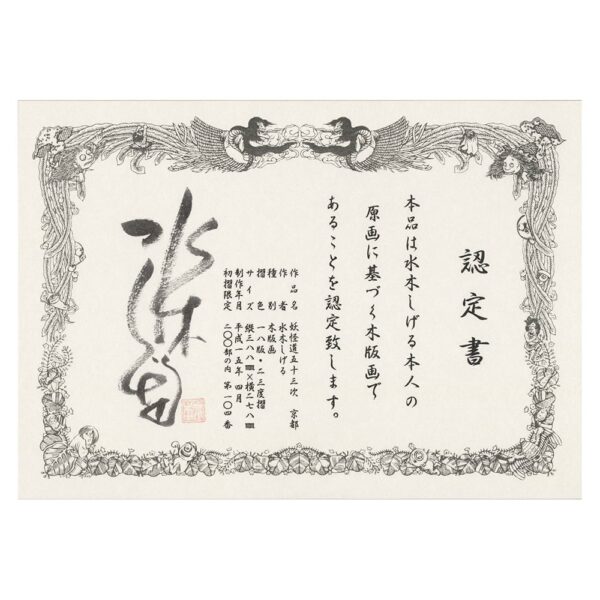 認定書
本品は水木しげる本人の
原画に基づく木版画で
あることを認定致します。
作品名 妖怪道五十三次 京都
作者 水木しげる
種別 木版画
摺色 一八版・二三度摺
サイズ 縦三八八㎜×横二七八㎜
制作年月 平成一五年四月
初摺限定 二〇〇部の内 第一〇四番
水木しげる